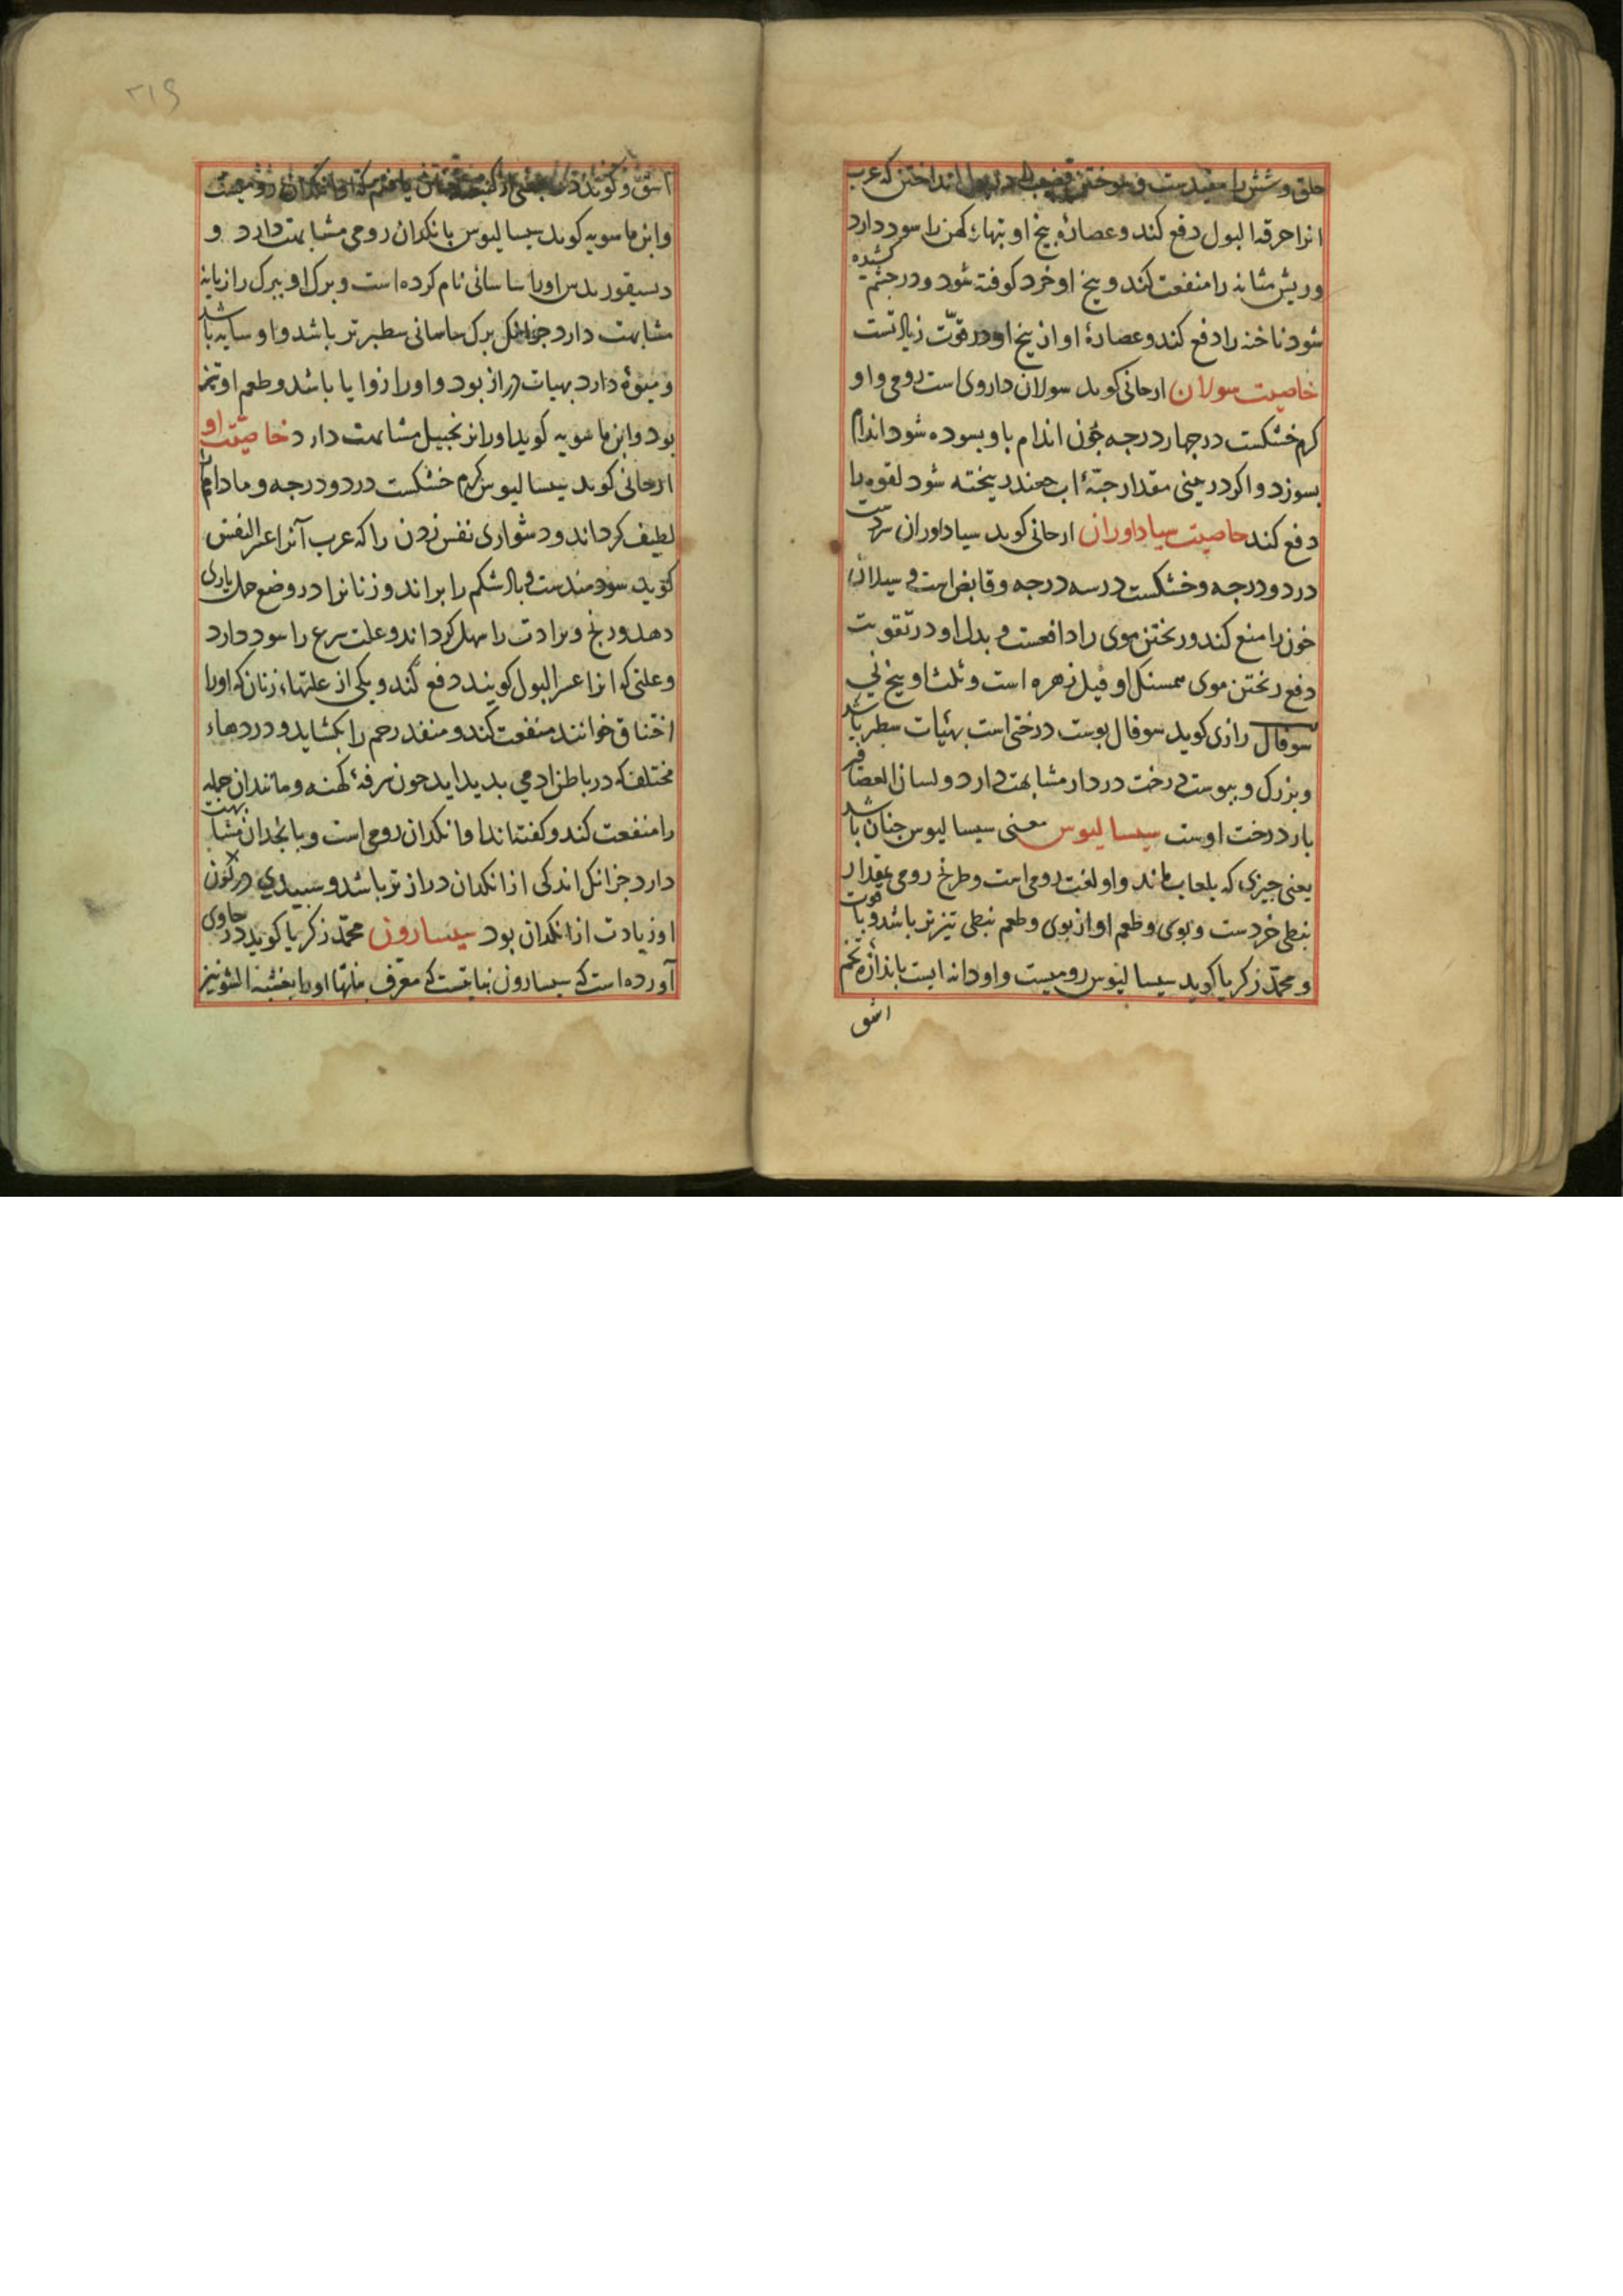 حلق و شش را مفیدست و سوختن قضیب را در بول انداختن که عرب
انرا حرقه البول دفع کند و عصارۀ بیخ او تبهاء کهن را سود دارد
و ریش مثانه را منفعت کند و بیخ او خرد کوفته شود و در چشم کشیده
شود ناخنه را دفع کند و عصارۀ او از بیخ او در قوّت زیادتست
خاصیت سولان ارجانی کوید سولان داروی است رومی و او
کرم خشکست در چهار درجه چون اندام باو بسوده شود اندام
بسوزد و اکر در بینی مقدار حبّۀ اب چغندر ریخته شود لقوه را
دفع کند خاصیت سیاداوران ارجانی کوید سیاداوران سردست
در دو درجه و خشکست در سه درجه و قابض است و سیلان
خون را منع کند و ریختن موی را دافعست و بدل او در تقویت
دفع ریختن موی همسنک او فیل زهره است و ثلث او بیخ نی
سوفال رازی کوید سوفال پوست درختی است بهیات سطبر باشد
و بزرک و پیوست درخت دردار مشابهت دارد و لسان العصافیر
بار درخت اوست سیسالیوس معنی سیسالیوس چنان باشد
یعنی چیزی که بلعاب ماند و او لغت رومی است و طرنج رومی بمقدار
نبطی خردست و بوی و طعم او از بوی و طعم نبطی تیزتر باشد و با قوت
و محمّد زکریا کوید سیسالیوس رومیست و او دانه ایست باندازه تخم
اشق
۲۱۶
اشق و کویند
و ابن ماسویه کوید سیسالیوس بانکدان رومی مشابهت دارد و
دیسیقوریدس او را ساسانی نام کرده است و برک او ببرک رازیانه
مشابهت دارد جزانک برک ساسانی سطبرتر باشد و او سایه باشد
و میوۀ دارد بهیات دراز بود و او را زوایا باشد و طعم او تیز
بود و ابن ماسویه کوید او را بزنجبیل مشابهت دارد خاصیّت او
ارجانی کوید سیسالیوس کرم خشکست در دو درجه و مادام را
لطیف کرداند و دشواری نفس زدن را که عرب آنرا عسر النفس
کوید سودمندست و بالا شکم را براند و زنانرا در وضع حمل یاری
دهد و رنج ولادت را سهل کرداند و علت صرع را سود دارد
و علتی که انرا عسر البول کویند دفع کند و یکی از علتهاء زنان که او را
اختناق خوانند منفعت کند و منفذ رحم را بکشاید و دردهاء
مختلف که در باطن ادمی پدید اید چون سرفۀ کهنه و مانند ان جمله
را منفعت کند و کفته‌اند او انکدان رومی است و بانجدان مشابهت
دارد جزانک اندکی از انکدان درازتر باشد و سپیدی در کون
او زیادت از انکدان بود سیسارون محمّد زکریا کوید در حاوی
آورده است که سیسارون نباتیست که معرف نباتها او را بخشبه الشونیز